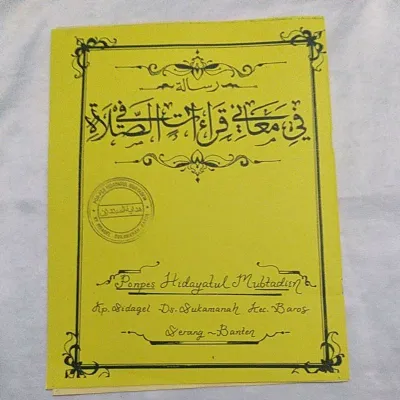 رسالة
في معاني قراءات الصلاة
هداية المبتدئين
Ponpes Hidayatul Mubtadiin
Kp. Sidagel Ds. Sukamanah Kec. Baros
Serang - Banten